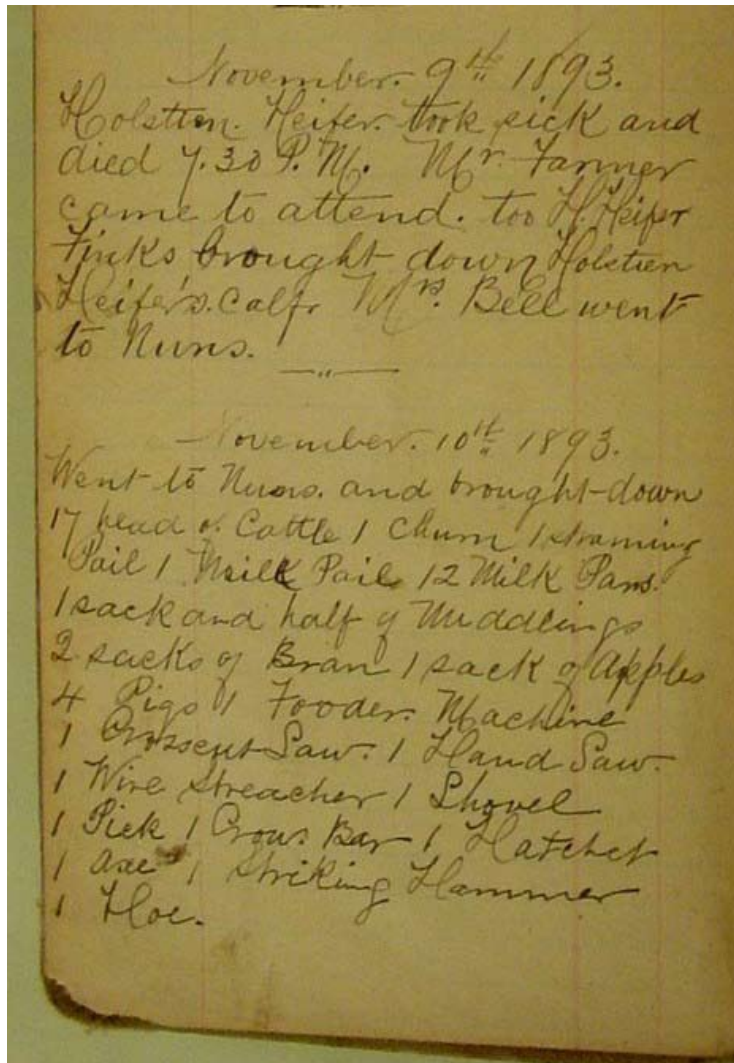 November. 9th 1893.
Holstien. Heifer. took sick and
died 7.30 P.M. Mr. Farmer
came to attend. too H. Heifer
Finks brought down Holstien
Heifer's. Calf. Mrs. Bell went
to Nuns.
November. 10th 1893.
Went to Nuns. and brought down
17 head of Cattle 1 Churn 1 straming
Pail 1 Milk Pail 12 Milk Pans.
1 sack and half of Middlings
2 sacks of Bran 1 sack of Apples
4 Pigs 1 Fooder. Machine
1 Crosscut Saw. 1 Hand Saw.
1 Wire Streacher 1 Shovel
1 Pick 1 Crow. Bar 1 Hatchet
1 Axe 1 Striking Hammer
1 Hoe.